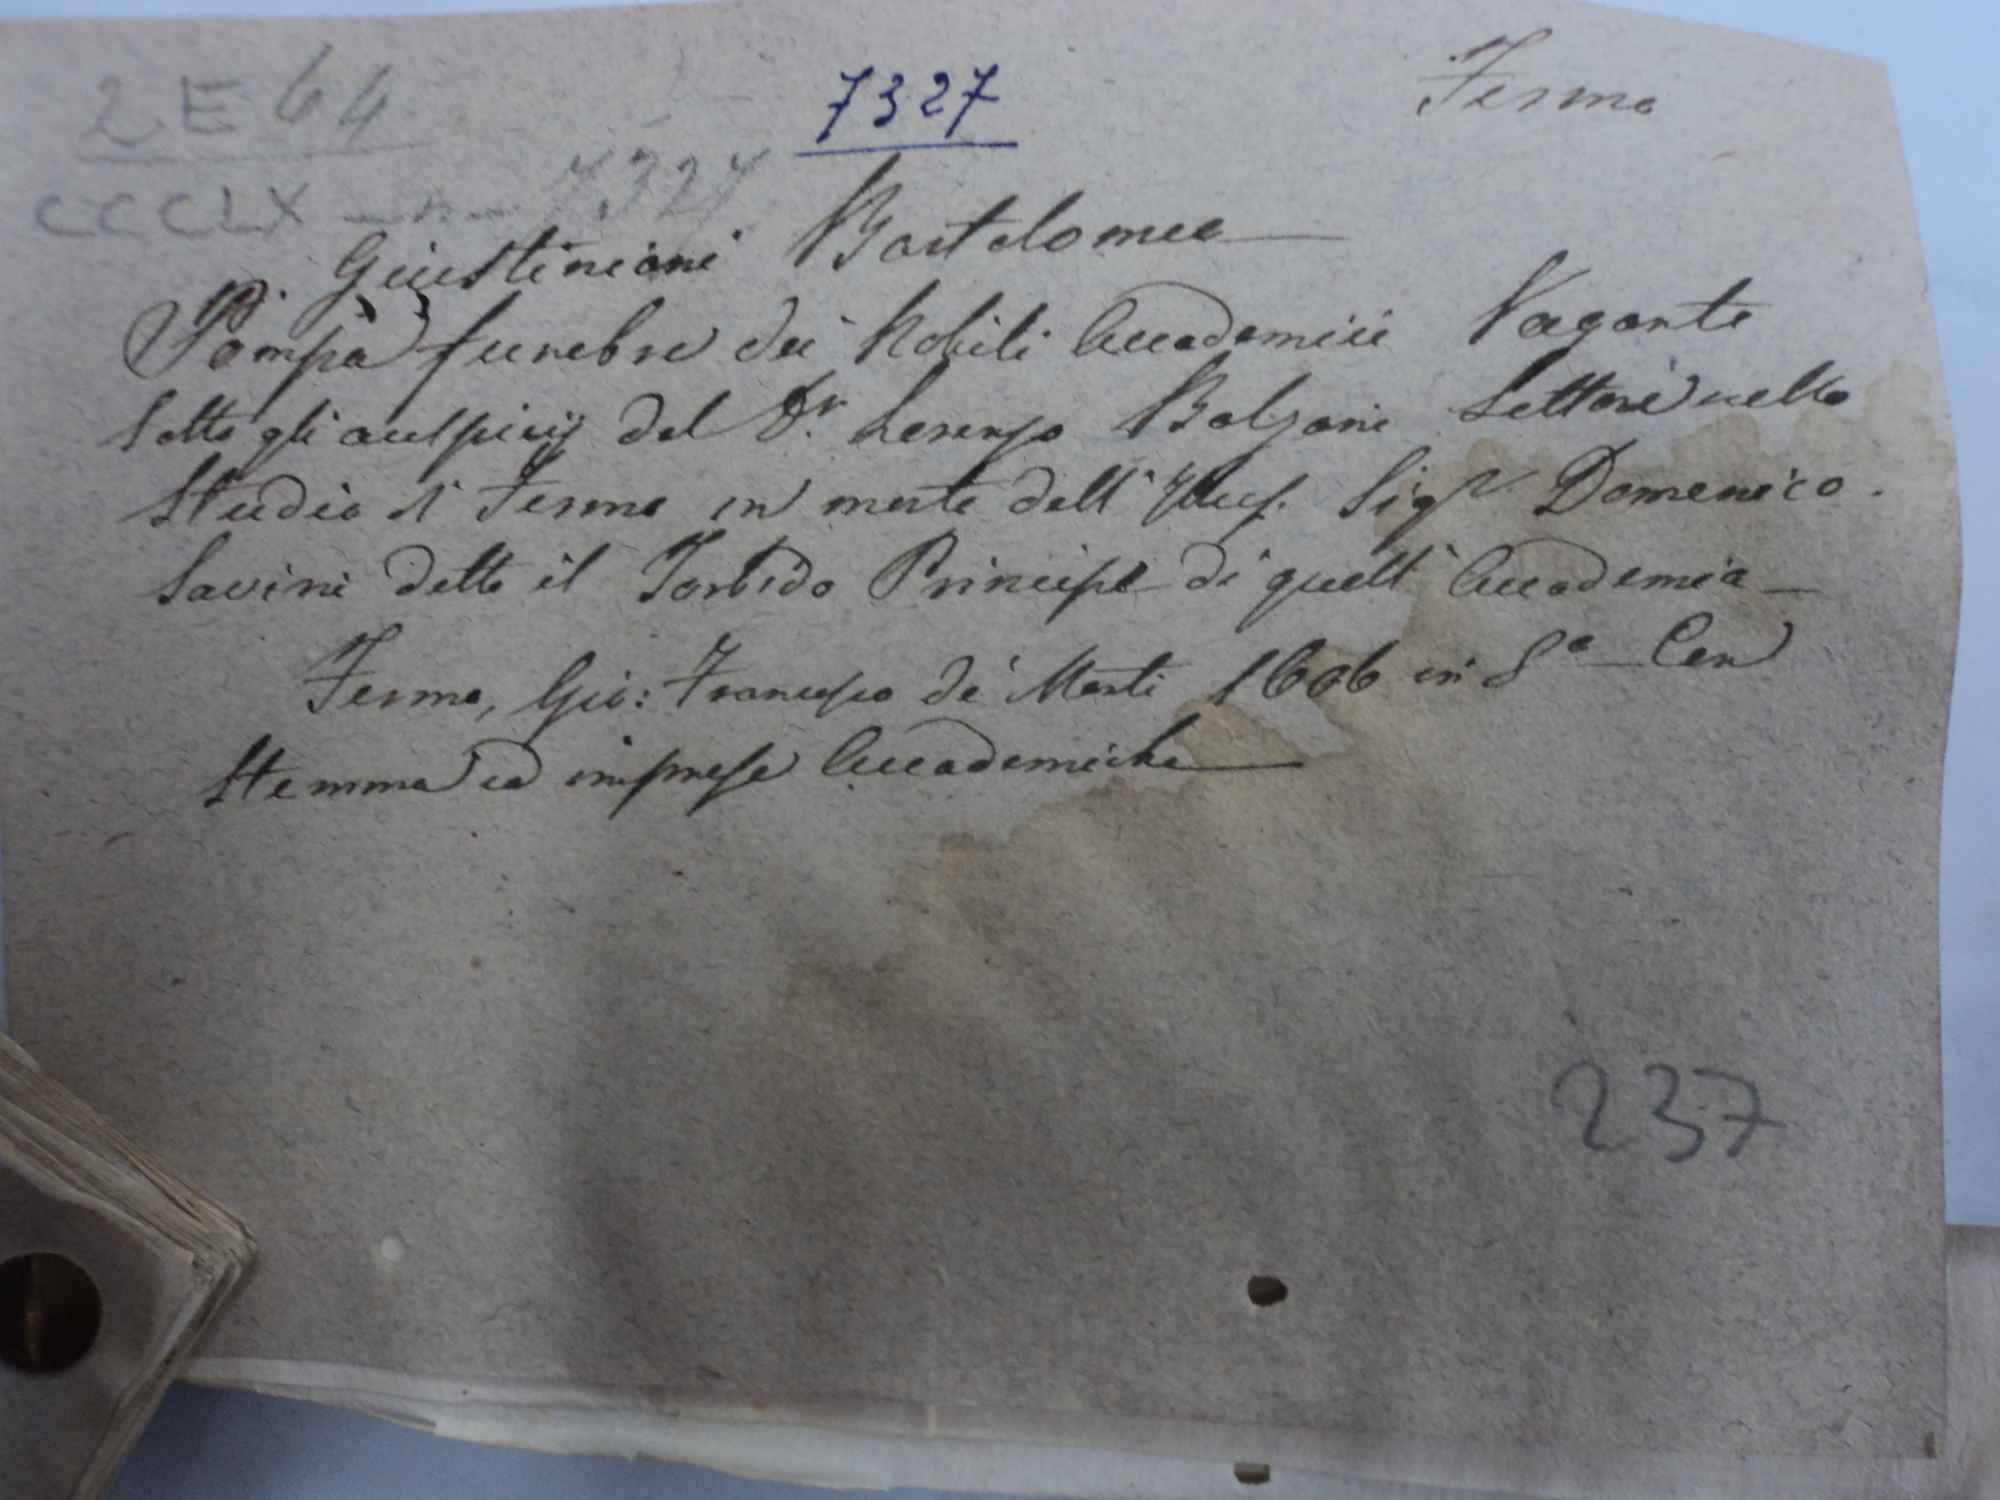 2 E 64
7327
Fermo
CCCLX - n - 7327
Giustiniani Bartolomeo
Pompa funebre dei Nobili Accademici Vaganti
Sotto gli auspicij del Dr. Lorenzo Bolzoni Lettore nello
Studio di Fermo in morte dell' Illus. Sigr. Domenico
Savini detto il Torbido Principe di quell' Accademia
Fermo, Gio: Francesco de' Monti 1606 in 8° Con
Stemma ed imprese Accademiche
237